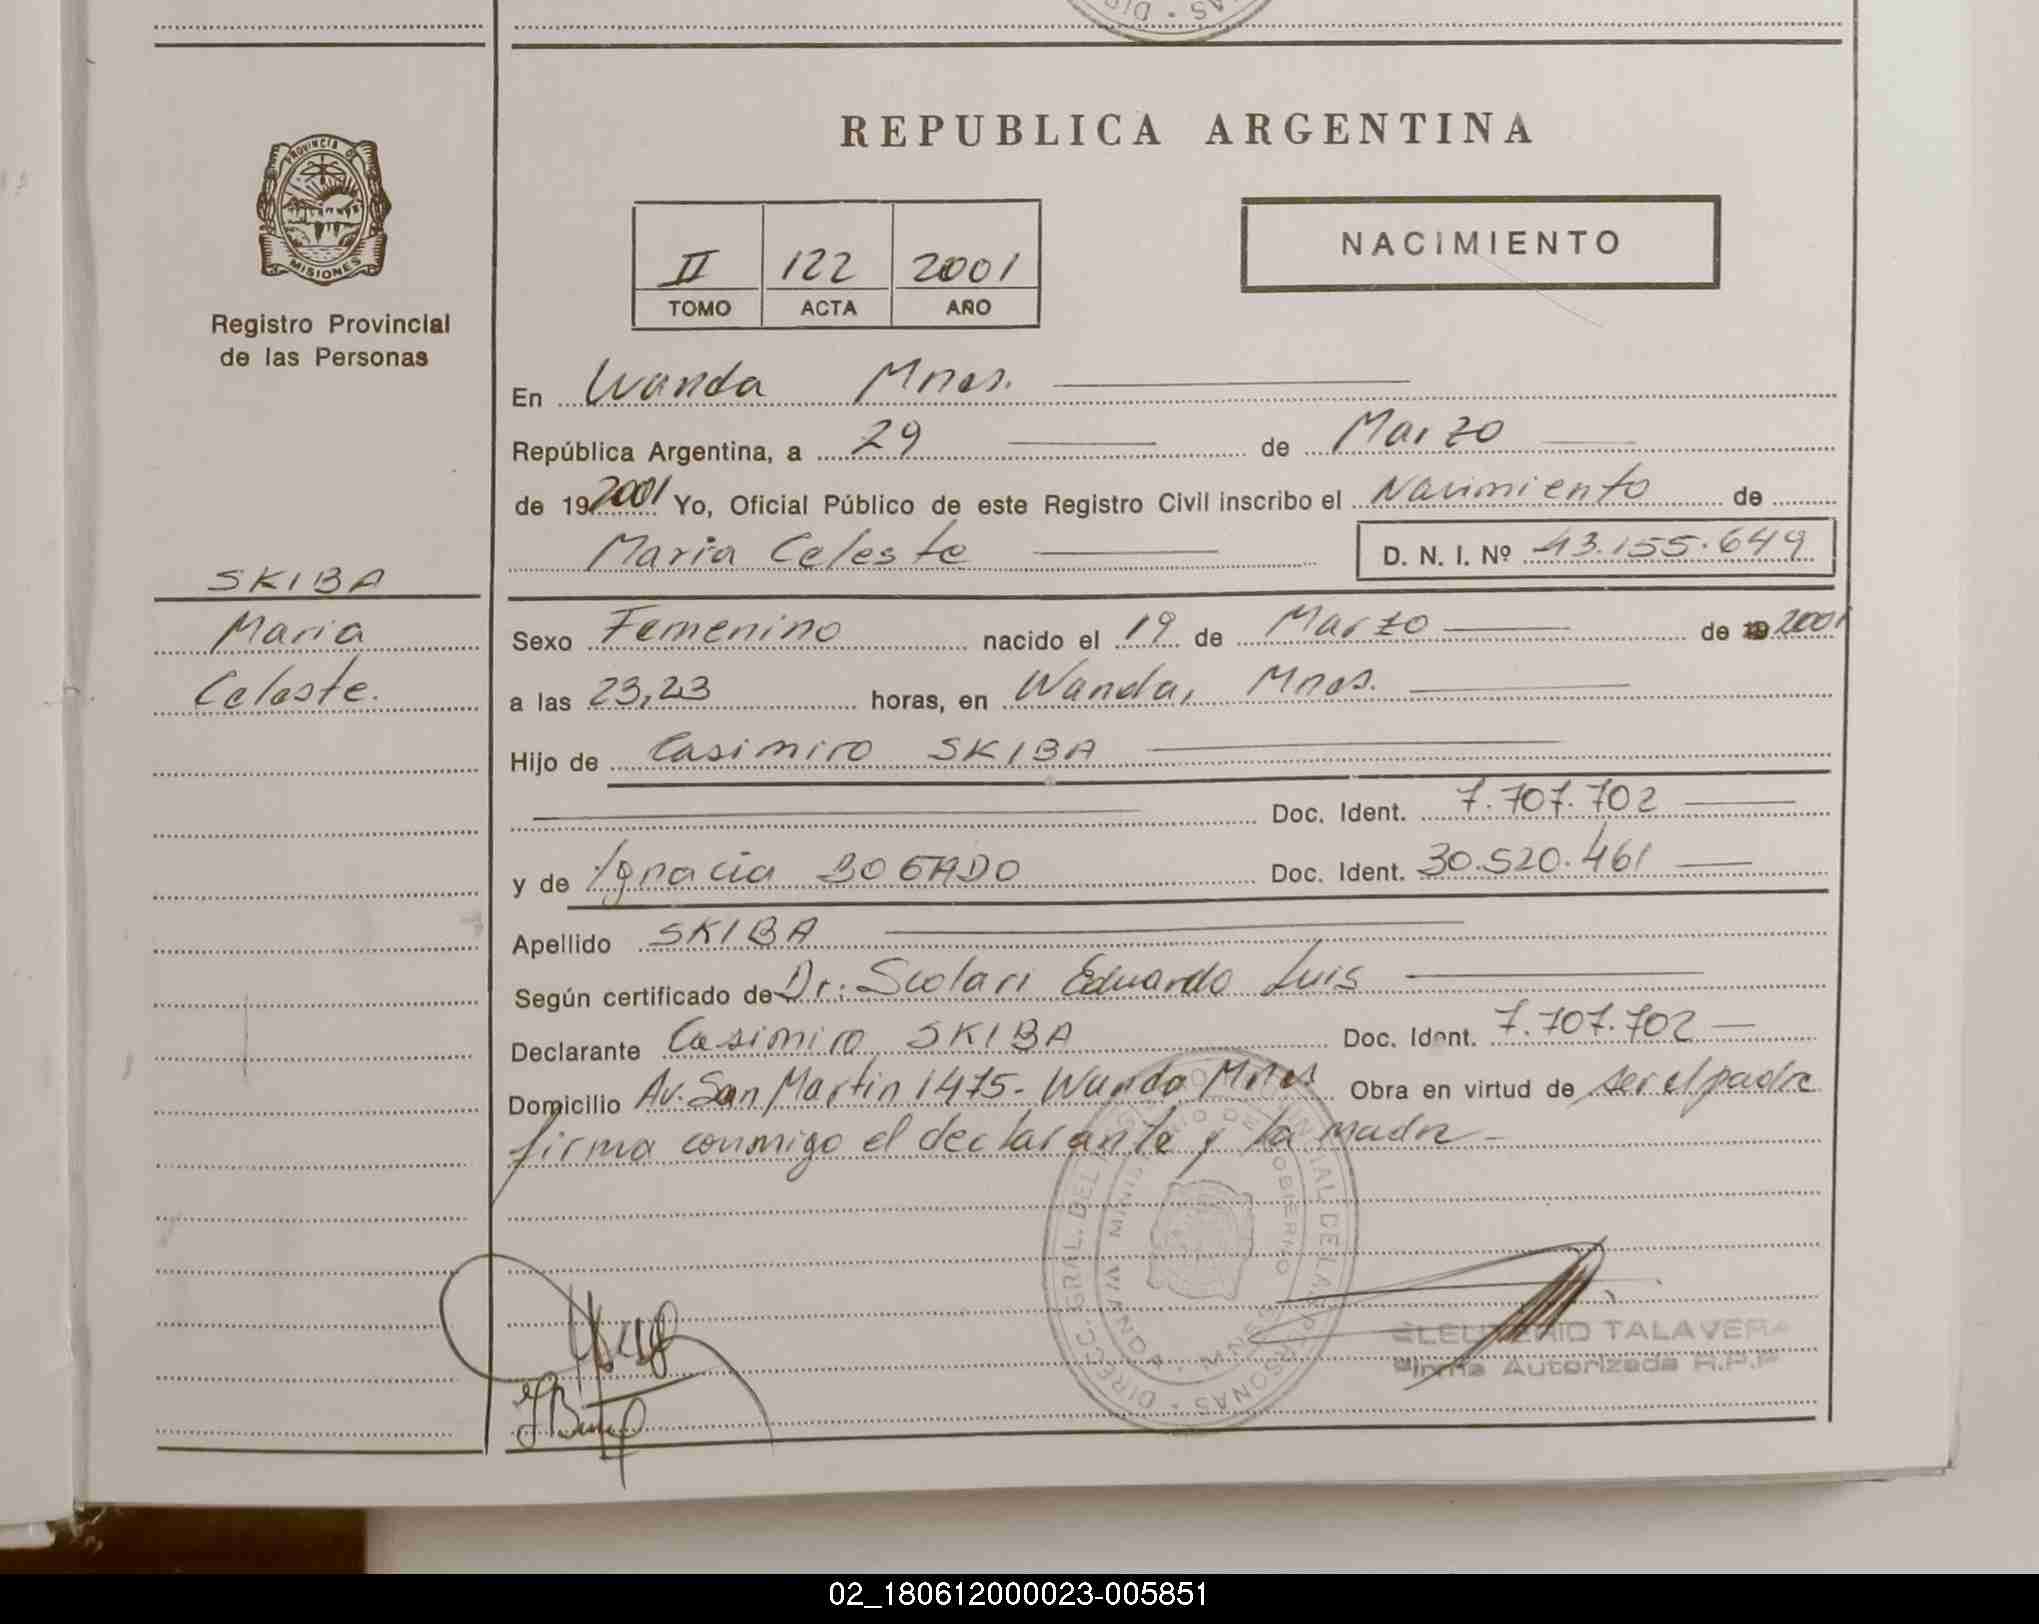 DIR · S AS
REPUBLICA ARGENTINA
PROVINCIA DE
MISIONES
Registro Provincial
de las Personas
II 122 2001
TOMO ACTA AÑO
NACIMIENTO
En Wanda Mnes.
República Argentina, a 29 de Marzo
de 19 2001 Yo, Oficial Público de este Registro Civil inscribo el Nacimiento de
Maria Celeste D. N. I. Nº 43.155.649
SKIBA
Maria
Celeste.
Sexo Femenino nacido el 19 de Marzo de 2001
a las 23,23 horas, en Wanda, Mnes.
Hijo de Casimiro SKIBA
Doc. Ident. 7.707.702
y de Ignacia BOGADO Doc. Ident. 30.520.461
Apellido SKIBA
Según certificado de Dr: Scolari Eduardo Luis
Declarante Casimiro SKIBA Doc. Ident. 7.707.702
Domicilio Av. San Martin 1475- Wanda Mnes Obra en virtud de ser el padre
firma conmigo el declarante y la madre -
ELEUTERIO TALAVERA
Firma Autorizada R.P.P
02_180612000023-005851